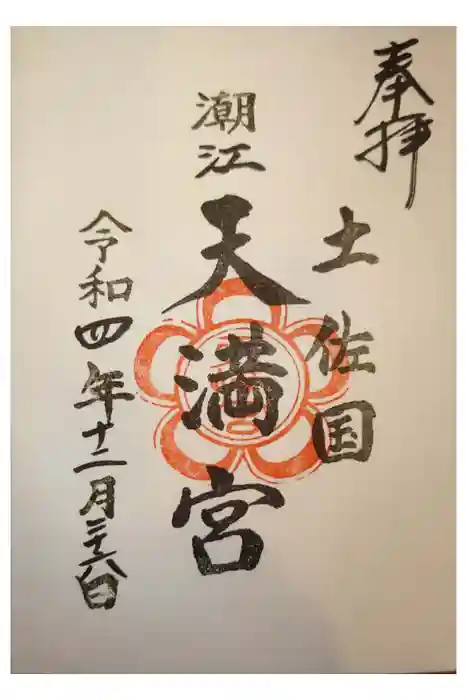 奉拝
土佐国
潮江
天満宮
令和四年十二月二十八日